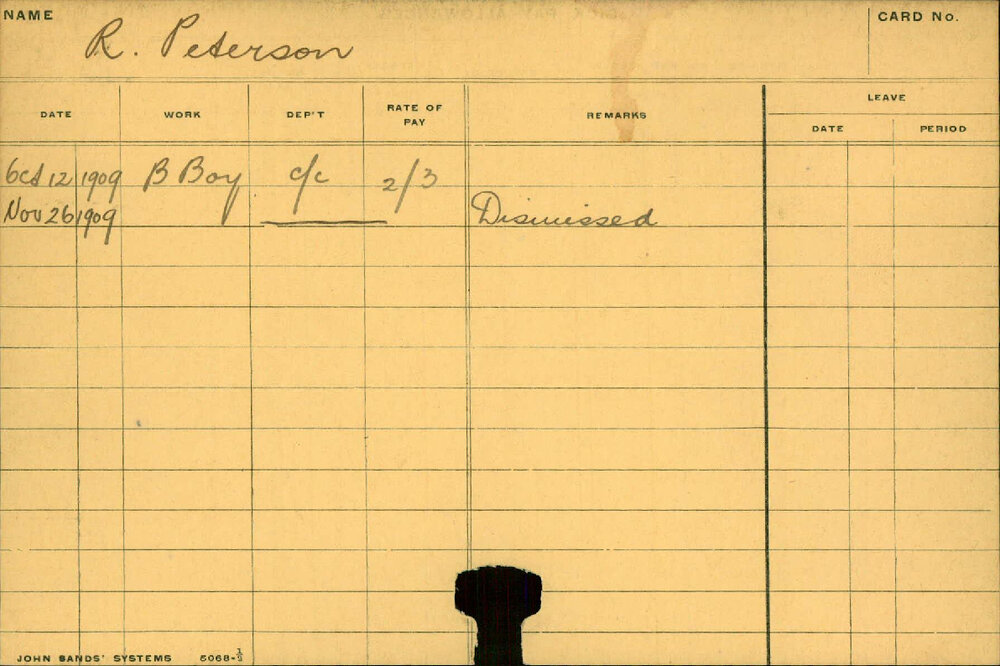 NAME R. Peterson CARD No.
DATE WORK DEP'T RATE OF PAY REMARKS LEAVE
DATE PERIOD
Oct 12 1909 B Boy c/c 2/3
Nov 26 1909 Dismissed
JOHN SANDS' SYSTEMS